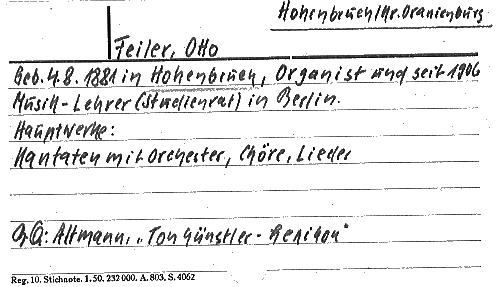 Hohenbruch/Kr. Oranienburg
Feiler, Otto
Geb. 4.8.1881 in Hohenbruch, Organist und seit 1906
Musik-Lehrer (Studienrat) in Berlin.
Hauptwerke:
Kantaten mit Orchester, Chöre, Lieder
Altmann, „Tonkünstler-Lexikon"
Reg. 10. Stichnote. 1. 50. 232 000. A. 803. S. 4062